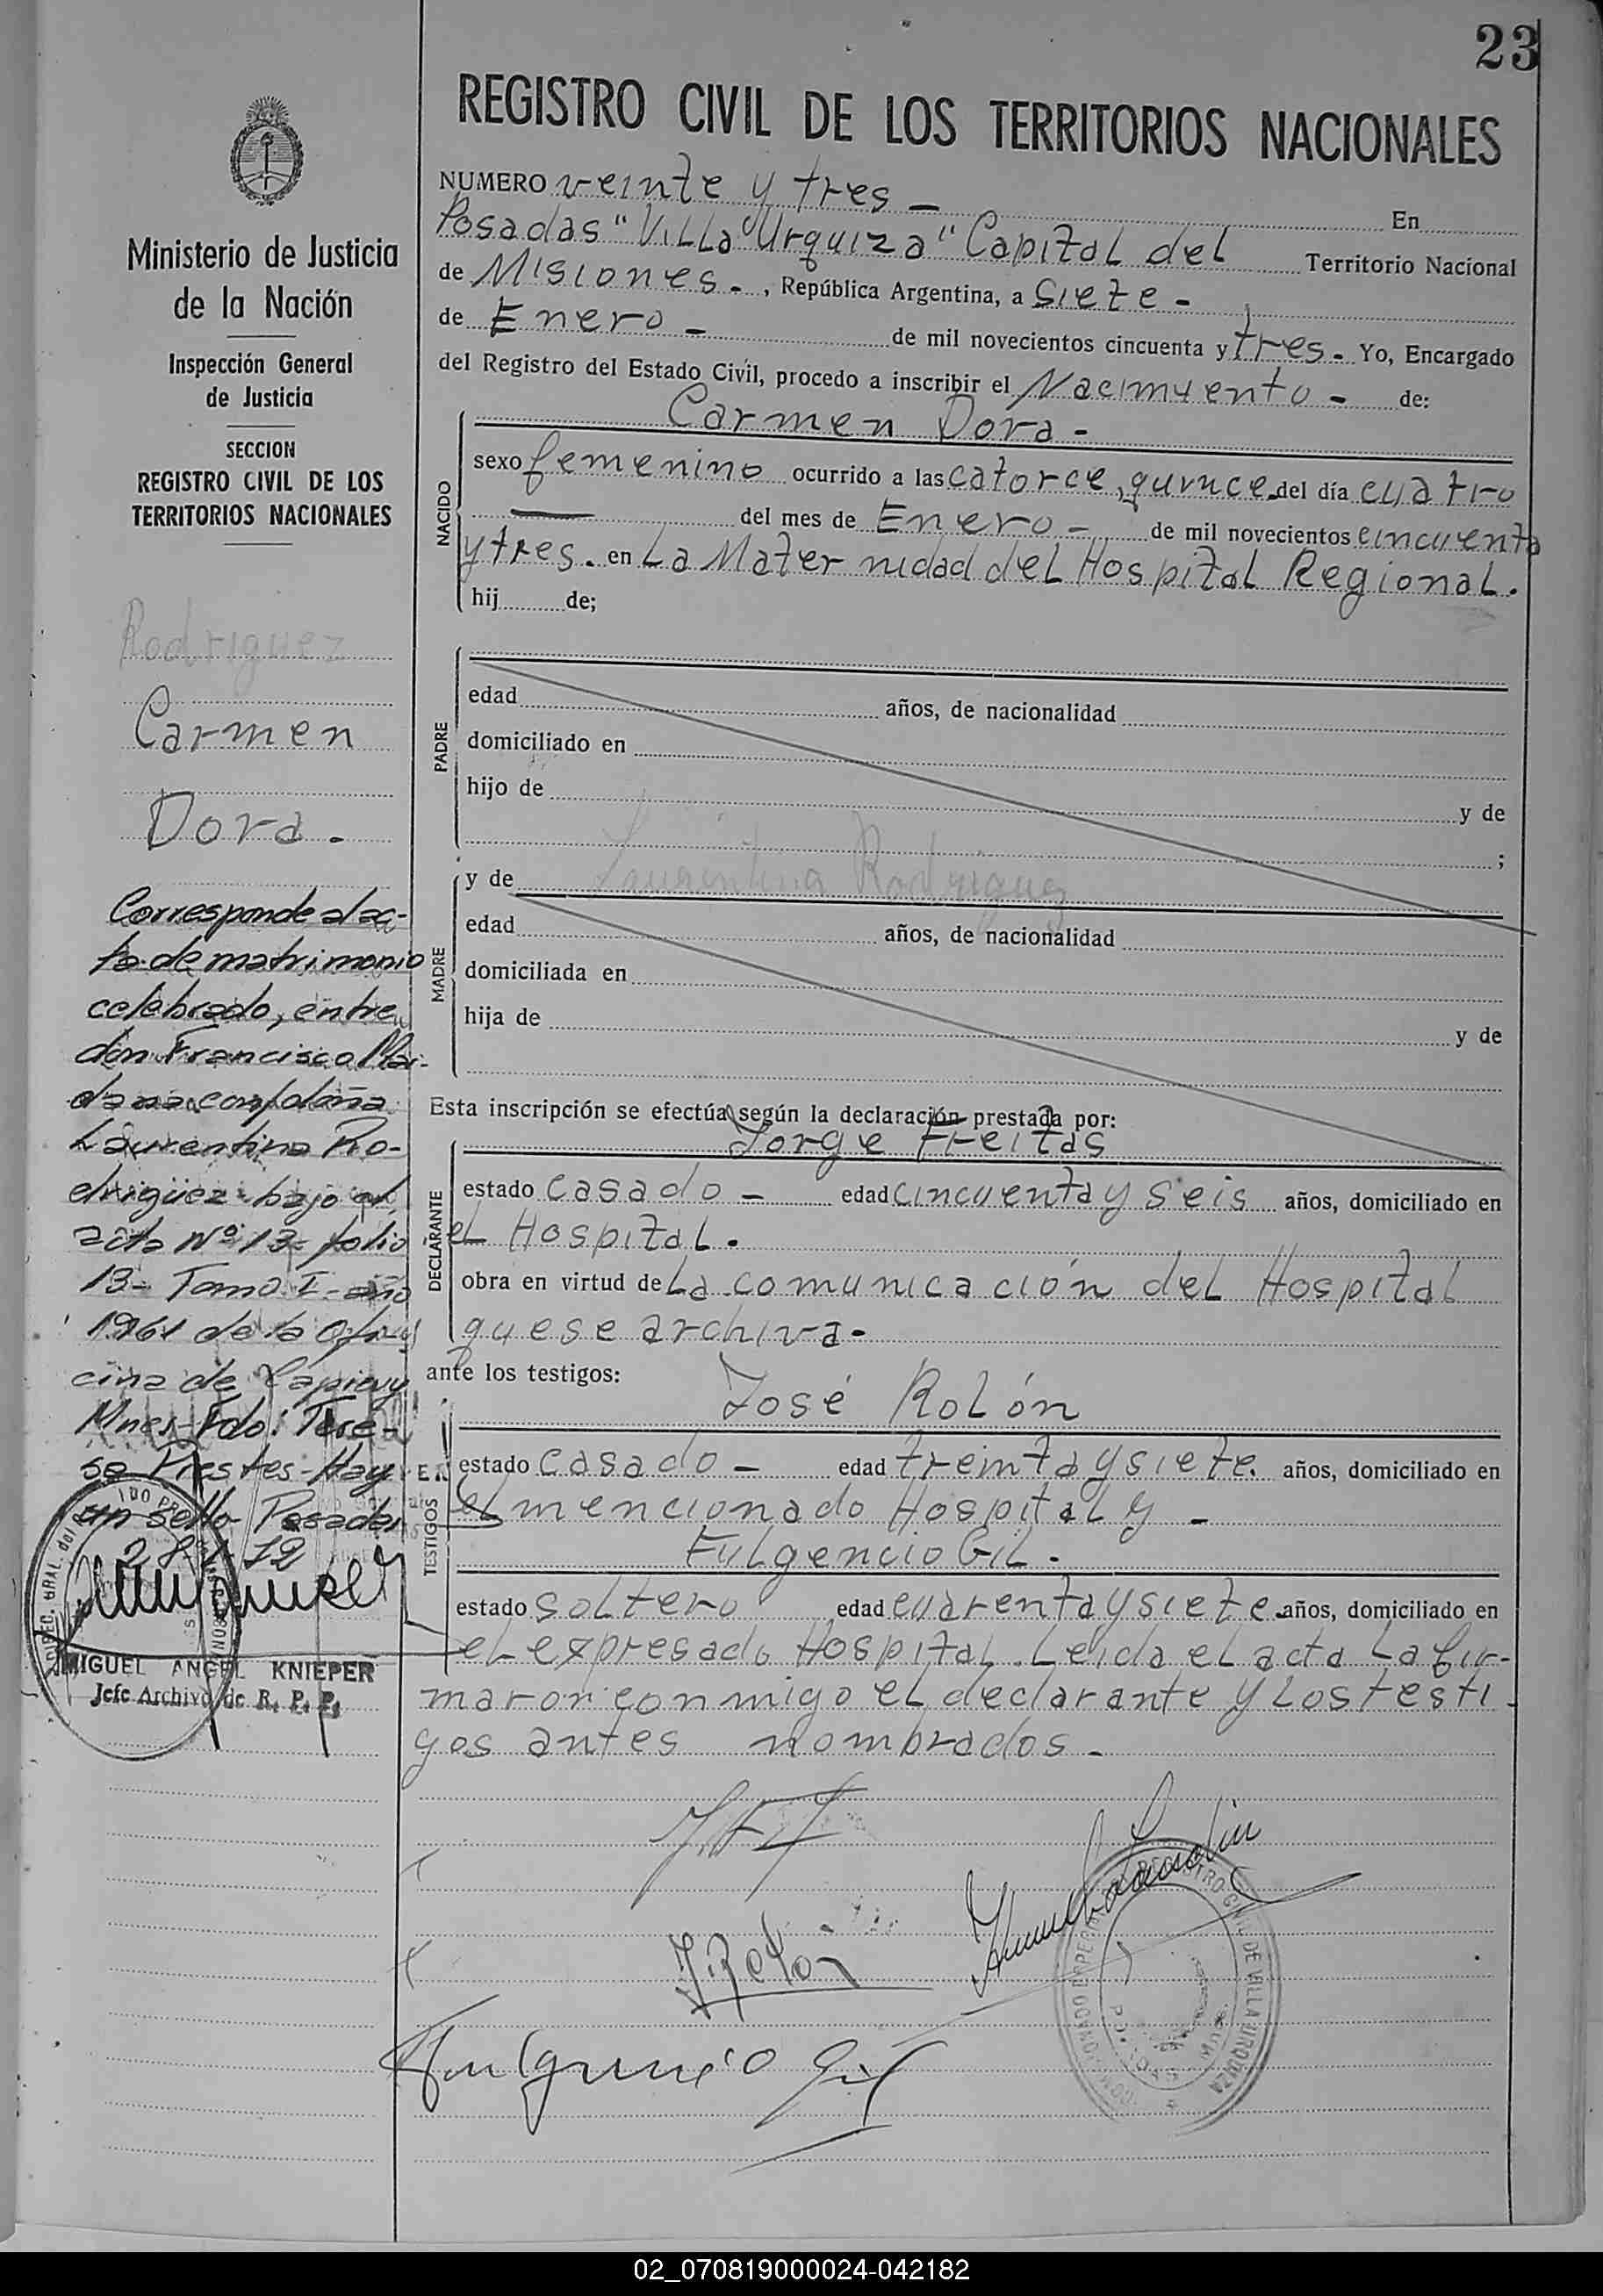 23
REGISTRO CIVIL DE LOS TERRITORIOS NACIONALES
Ministerio de Justicia
de la Nación
Inspección General
de Justicia
SECCION
REGISTRO CIVIL DE LOS
TERRITORIOS NACIONALES
Rodriguez
Carmen
Dora.
Corresponde al ac-
ta de matrimonio
celebrado, entre
don Francisco Mai-
dana con doña
Laurentina Ro-
driguez bajo el
acta Nº 13- folio
13- Tomo I- año
1961 de la Ofi-
cina de
Mnes- Fdo: Tere-
sa Prestes- Hay
un sello Posadas
MIGUEL ANGEL KNIEPER
Jefe Archivo de R. P. P.
NUMERO veinte y tres — En
Posadas "Villa Urquiza" Capital del Territorio Nacional
de Misiones - , República Argentina, a siete -
de Enero - de mil novecientos cincuenta y tres. Yo, Encargado
del Registro del Estado Civil, procedo a inscribir el Nacimiento - de:
Carmen Dora -
NACIDO
sexo femenino ocurrido a las catorce, quince del día cuatro
— del mes de Enero - de mil novecientos cincuenta
y tres. en La Maternidad del Hospital Regional.
hij de;
PADRE
edad años, de nacionalidad
domiciliado en
hijo de y de
;
MADRE
y de Laurentina Rodriguez
edad años, de nacionalidad
domiciliada en
hija de y de
Esta inscripción se efectúa según la declaración prestada por:
Jorge Freitas
DECLARANTE
estado casado - edad cincuenta y seis años, domiciliado en
el Hospital.
obra en virtud de La comunicación del Hospital
que se archiva-
ante los testigos:
José Rolón
TESTIGOS
estado casado - edad treinta y siete. años, domiciliado en
el mencionado Hospital y -
Fulgencio Gil.
estado soltero edad cuarenta y siete años, domiciliado en
el expresado Hospital. Leida el acta la fir-
maron conmigo el declarante y los testi-
gos antes nombrados -
J. Rolón
Fulgencio Gil
REGISTRO CIVIL DE VILLA URQUIZA
02_070819000024-042182